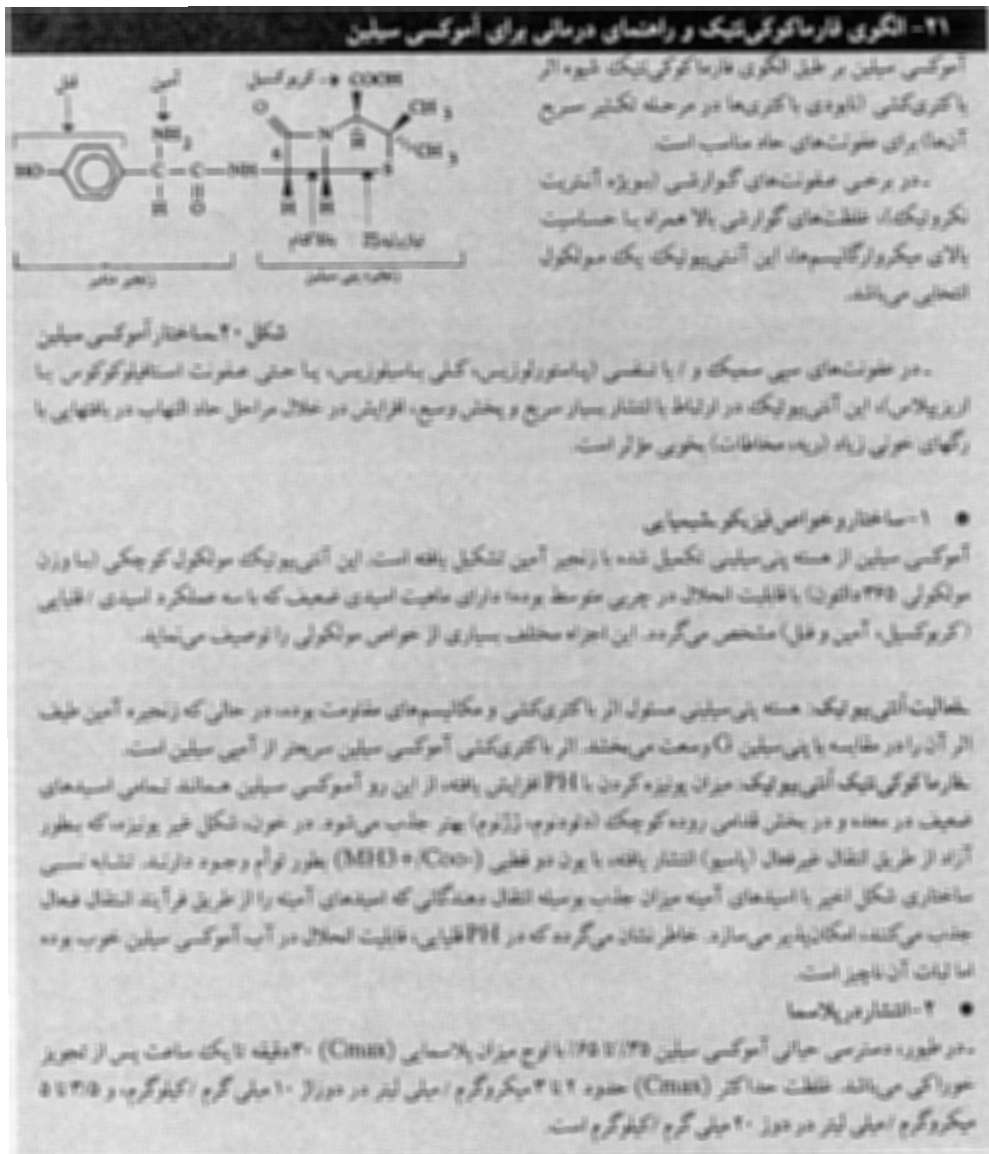 ۲۱- الگوی فارماکوکی‌نتیک و راهنمای درمانی برای آموکسی سیلین
آموکسی سیلین بر طبق الگوی فارماکوکی‌نتیک شیوه اثر
باکتری‌کشی (نابودی باکتری‌ها در مرحله تکثیر سریع
آن‌ها) برای عفونت‌های حاد مناسب است.
ـ در برخی عفونت‌های گوارشی (بویژه آنتریت
نکروتیک)، غلظت‌های گوارشی بالا همراه با حساسیت
بالای میکروارگانیسم‌ها، این آنتی‌بیوتیک یک مولکول
انتخابی می‌باشد.
فنل آمین کربوکسیل COOH
O N CH3
NH2 H CH3
HO C C NH S
H O H H
بتالاکتام
زنجیر متغیر
شکل ۲۰ـ ساختار آموکسی سیلین
ـ در عفونت‌های سپی سمیک و / یا تنفسی (پاستورلوزیس، کلی باسیلوزیس، یا حتی عفونت استافیلوکوکوس یا
اریزیپلاس)، این آنتی‌بیوتیک در ارتباط با انتشار بسیار سریع و پخش وسیع، افزایش در خلال مراحل حاد التهاب در بافتهایی با
رگهای خونی زیاد (ریه، مخاطات) بخوبی مؤثر است.
● ۱- ساختار و خواص فیزیکوـشیمیایی
آموکسی سیلین از هسته پنی‌سیلینی تکمیل شده با زنجیر آمین تشکیل یافته است. این آنتی‌بیوتیک مولکول کوچکی (با وزن
مولکولی ۳۶۵ دالتون) با قابلیت انحلال در چربی متوسط بوده؛ دارای ماهیت اسیدی ضعیف که با سه عملکرد اسیدی / قلیایی
(کربوکسیل، آمین و فنل) مشخص می‌گردد. این اجزاء مختلف بسیاری از خواص مولکولی را توصیف می‌نماید.
ـفعالیت آنتی‌بیوتیک: هسته پنی‌سیلینی مسئول اثر باکتری‌کشی و مکانیسم‌های مقاومت بوده، در حالی که زنجیره آمین طیف
اثر آن را در مقایسه با پنی‌سیلین G وسعت می‌بخشد. اثر باکتری‌کشی آموکسی سیلین سریعتر از آمپی سیلین است.
ـفارماکوکی‌نتیک آنتی‌بیوتیک: میزان یونیزه کردن با PH افزایش یافته، از این رو آموکسی سیلین همانند تمامی اسیدهای
ضعیف در معده و در بخش قدامی روده کوچک (دئودنوم، ژژنوم) بهتر جذب می‌شود. در خون، شکل غیر یونیزه، که بطور
آزاد از طریق انتقال غیرفعال (پاسیو) انتشار یافته، با یون دو قطبی (MH3+/Coo-) بطور توأم وجود دارند. تشابه نسبی
ساختاری شکل اخیر با اسیدهای آمینه میزان جذب بوسیله انتقال دهندگانی که اسیدهای آمینه را از طریق فرآیند انتقال فعال
جذب می‌کنند، امکان‌پذیر می‌سازد. خاطر نشان می‌گردد که در PH قلیایی، قابلیت انحلال در آب آموکسی سیلین خوب بوده
اما ثبات آن ناچیز است.
● ۲- انتشار در پلاسما
ـ در طیور، دسترسی حیاتی آموکسی سیلین با اوج میزان پلاسمایی (Cmax) ۳۰ دقیقه تا یک ساعت پس از تجویز
خوراکی می‌باشد. غلظت حداکثر (Cmax) حدود ۲ تا ۳ میکروگرم / میلی لیتر در دوز ۱۰ میلی گرم / کیلوگرم، و ۳/۵ تا ۵
میکروگرم / میلی لیتر در دوز ۲۰ میلی گرم / کیلوگرم است.